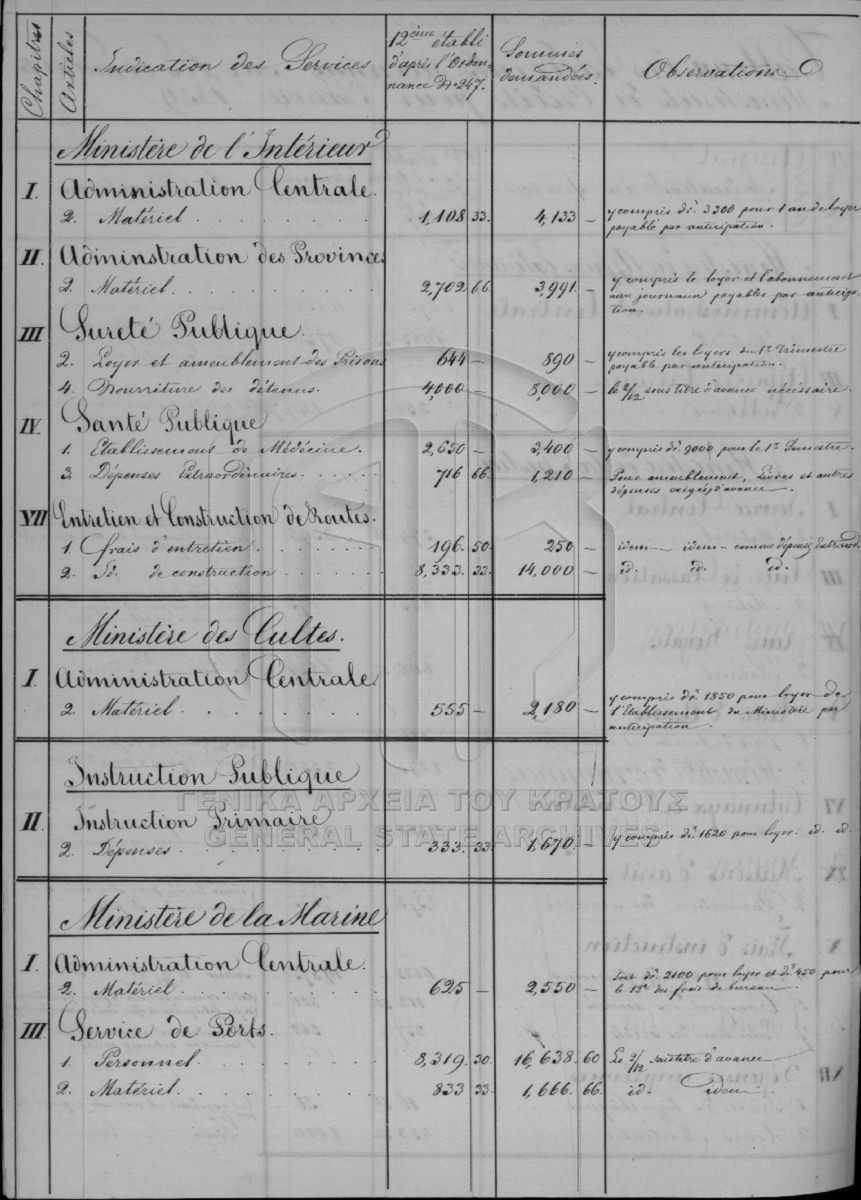 Chapitres Articles Indication des Services 12ème établi d'après l'Ordonnance No 247. Sommes demandées. Observations
Ministère de l'Intérieur
I. Administration Centrale.
2. Matériel 1,108 33. 4,133 — y compris dr. 3300 pour 1 an de loyer
payable par anticipation.
II. Adminstration des Provinces
2. Matériel. 2,702 66 3,991. — y compris le loyer et l'abonnement
aux journaux payables par anticipa-
tion.
III Sureté Publique.
2. Loyer et ameublement des Prisons 644 — 890 — y compris les loyers du 1r trimestre
payable par anticipation.
4. Nourriture des détenus. 4,000 — 8,000 — le 2/12 sous titre d'avance nécessaire.
IV. Santé Publique
1. Etablissement de Médécine. 2,650 — 3,400 — y compris dr. 9000 pour le 1r Semestre.
3. Dépenses Extraordinaires. 716 66. 1,210 — Pour ameublement, Livres et autres
dépenses exigées d'avance.
VII Entretien et Construction de Routes.
1. frais d'entretien. 196. 50. 250 — idem — idem — comme dépenses Extraord.
2. Id. de construction 8,333. 33. 14,000 — id. id. id.
Ministère des Cultes.
I Administration Centrale
2. Matériel. 555 — 2,180 — y compris dr. 1850 pour loyer de
l'Etablissement du Ministère par
anticipation.
Instruction Publique
II Instruction Primaire
2. Dépenses 333. 33. 1,670. — y compris dr. 1620 pour loyer. id. id.
ΓΕΝΙΚΑ ΑΡΧΕΙΑ ΤΟΥ ΚΡΑΤΟΥΣ
GENERAL STATE ARCHIVES
Ministère de la Marine
I. Administration Centrale.
2. Matériel. 625 — 2,550 — Soit dr. 2100 pour loyer et dr. 450 pour
le 12e des frais de bureau.
III. Service de Ports.
1. Personnel. 8,319. 30. 16,638. 60 Le 2/12 d'avance
2. Matériel. 833 33. 1,666. 66. id. idem.